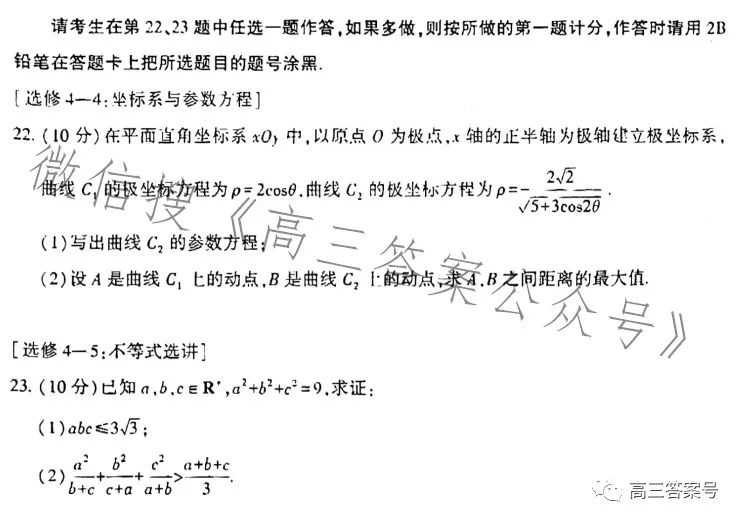 请考生在第 22、23 题中任选一题作答,如果多做,则按所做的第一题计分,作答时请用 2B
铅笔在答题卡上把所选题目的题号涂黑.
[选修 4—4:坐标系与参数方程]
22. (10 分)在平面直角坐标系 xOy 中,以原点 O 为极点,x 轴的正半轴为极轴建立极坐标系,
曲线 C₁ 的极坐标方程为 ρ=2cosθ,曲线 C₂ 的极坐标方程为 ρ=2√2/√(5+3cos2θ).
(1)写出曲线 C₂ 的参数方程;
(2)设 A 是曲线 C₁ 上的动点,B 是曲线 C₂ 上的动点,求 A,B 之间距离的最大值.
[选修 4—5:不等式选讲]
23. (10 分)已知 a,b,c∈R⁺,a²+b²+c²=9,求证:
(1)abc≤3√3;
(2)a²/(b+c)+b²/(c+a)+c²/(a+b)>(a+b+c)/3.
微信搜《高三答案公众号》
高三答案号